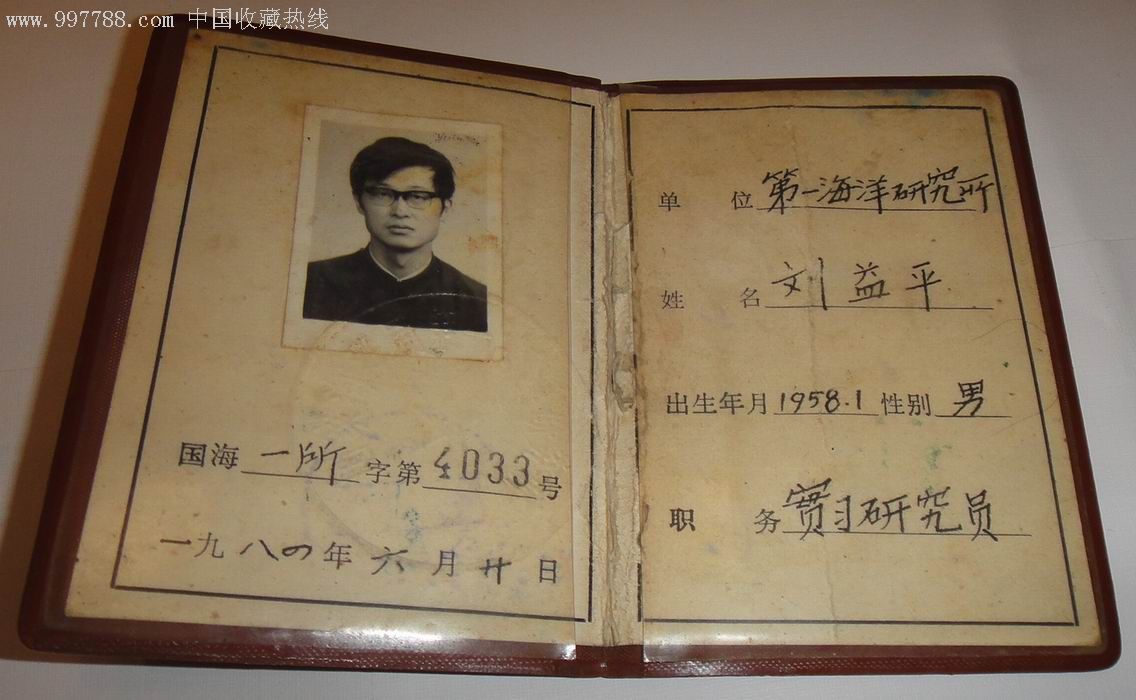 www.997788.com 中国收藏热线
国海一所字第4033号
一九八四年六月廿日
单位 第一海洋研究所
姓名 刘益平
出生年月 1958.1 性别 男
职务 實习研究员